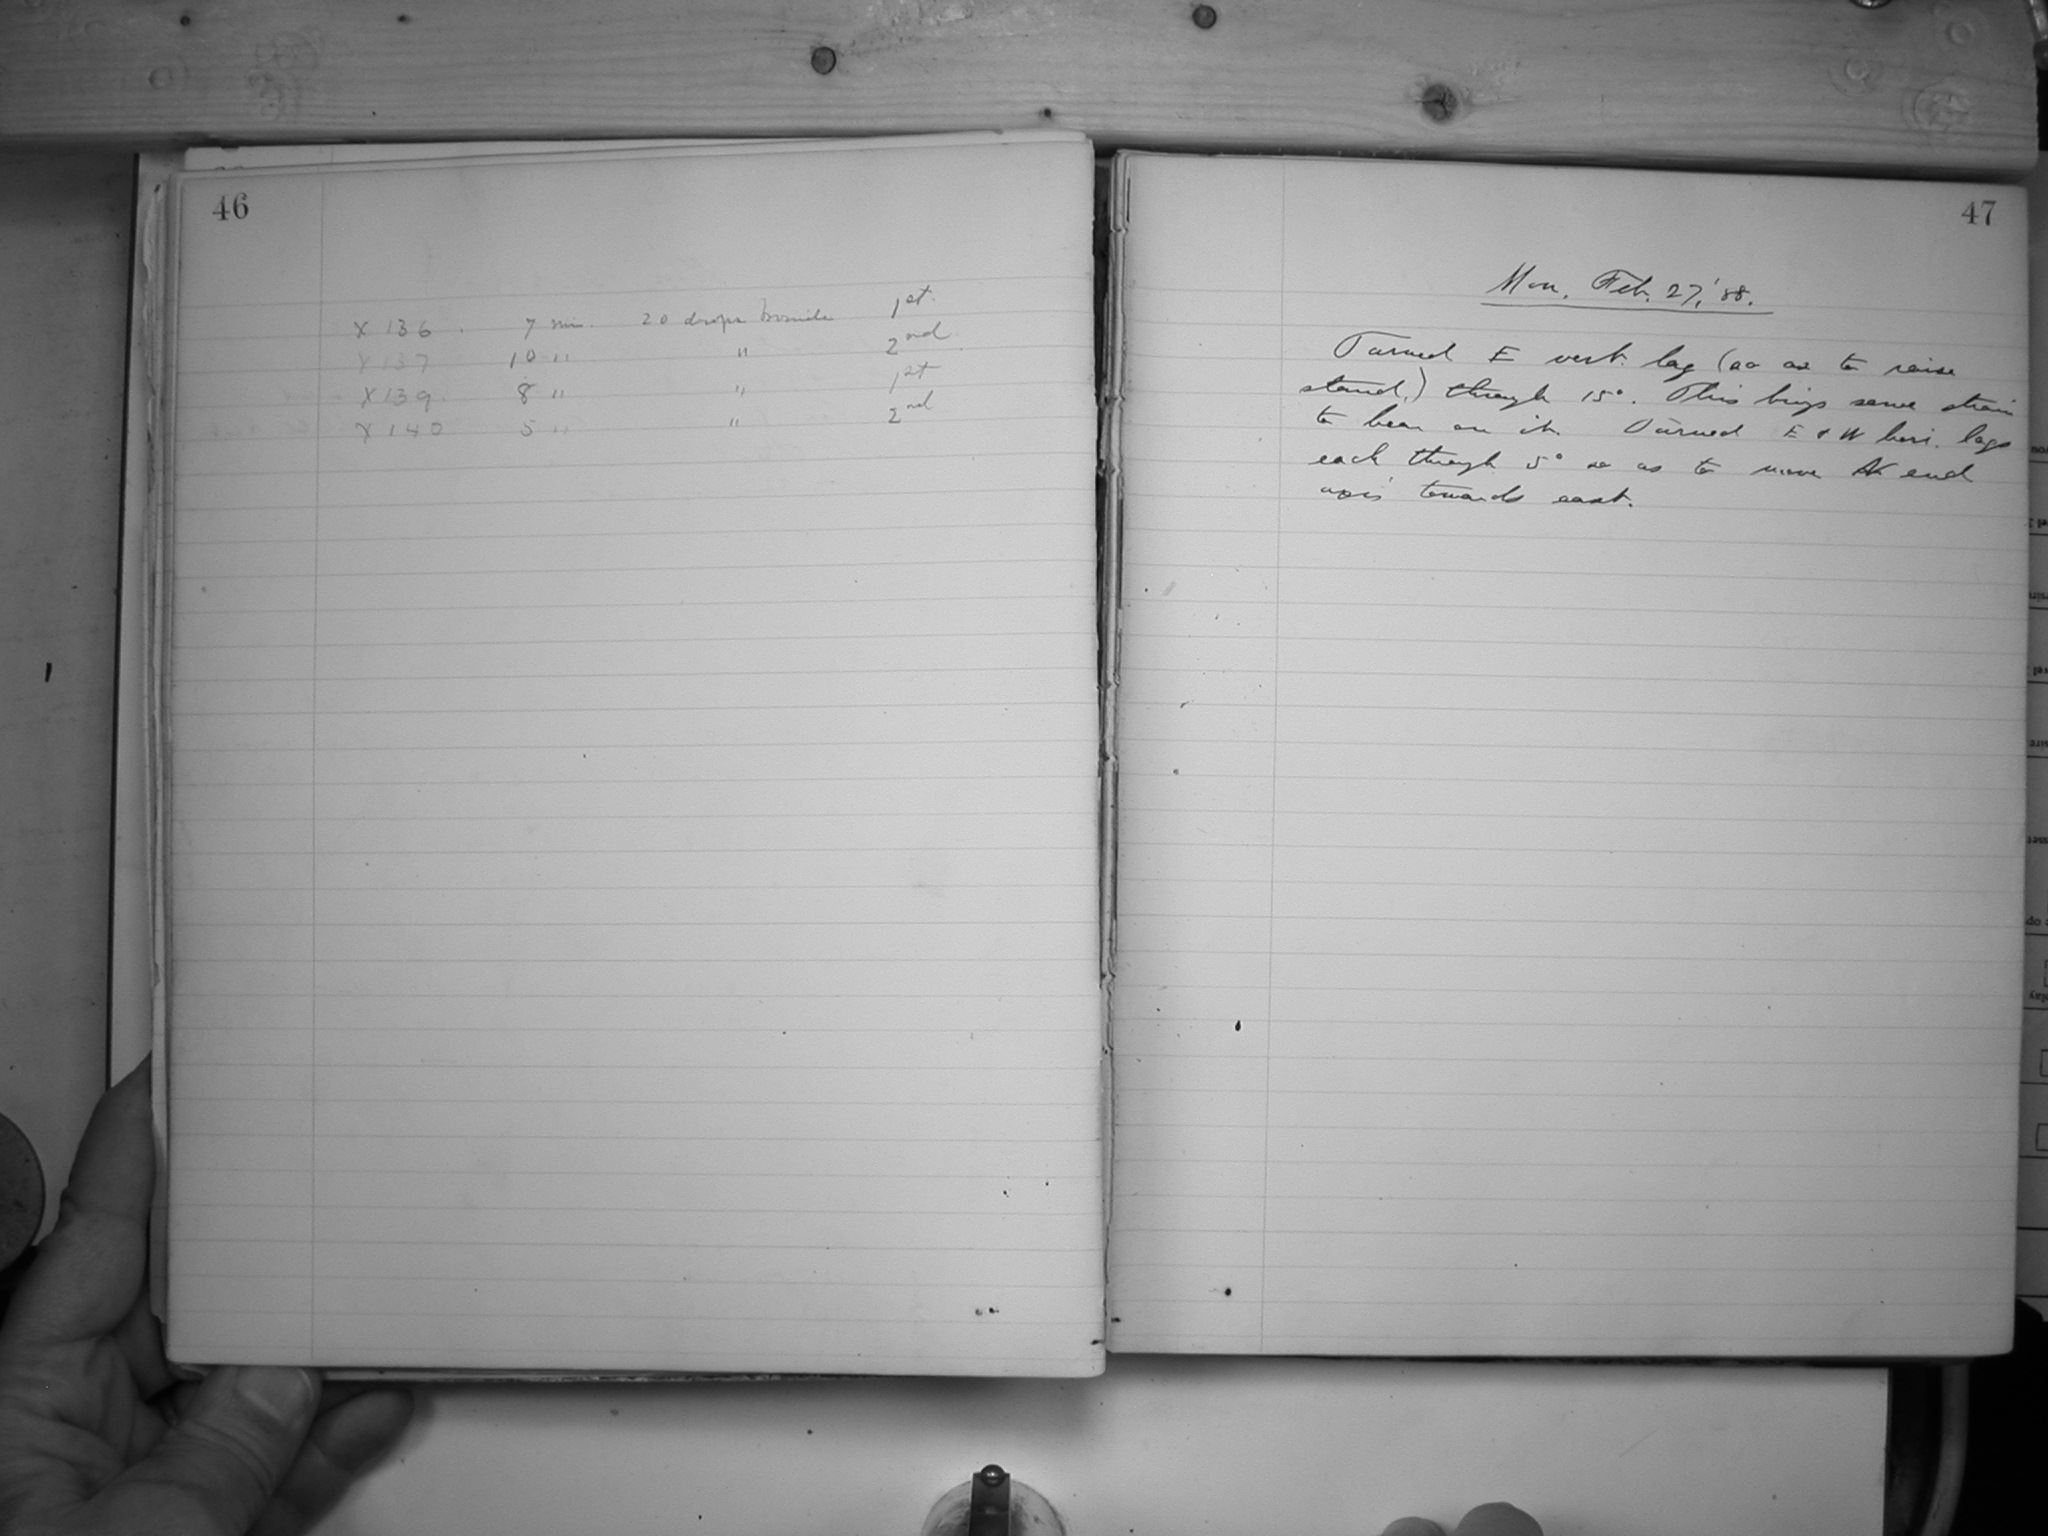 46
X 136 . 7 min. 20 drops bromide 1st.
X 137 10 " " 2nd.
X 139. 8 " " 1st
X 140 5 " " 2nd
47
Mon. Feb. 27, '88.
Turned E vert. lag (so as to raise
stand.) through 15°. This brings some strain
to bear on it. Turned E & W hori. lags
each through 5° so as to move N end
axis towards east.